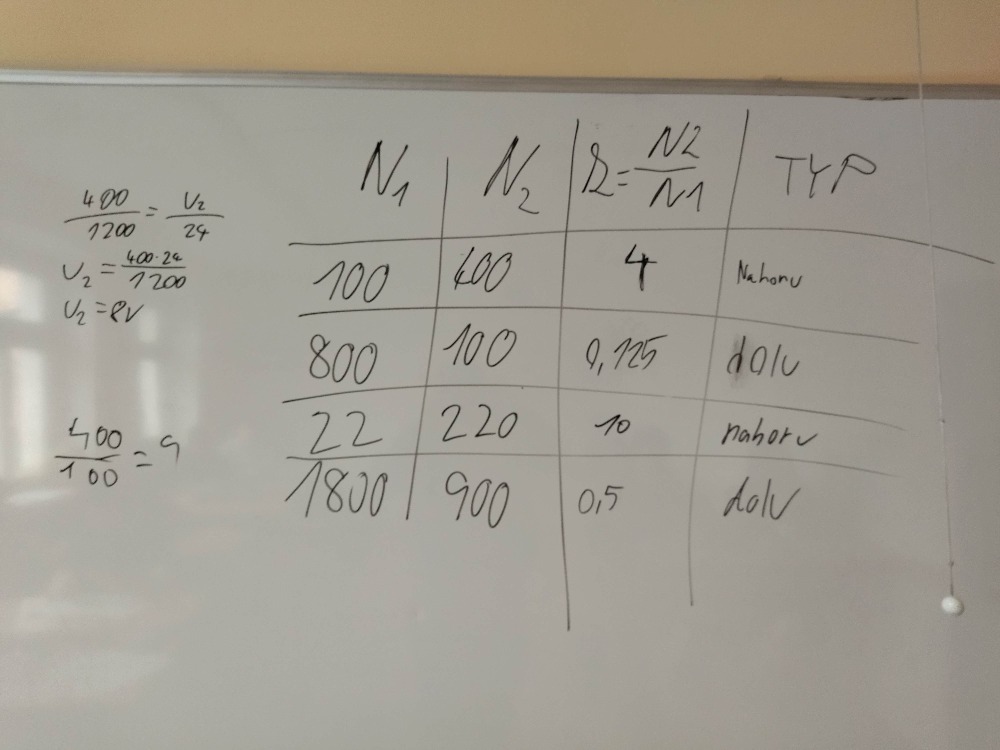 400/1200 = U₂/24
U₂ = 400·24/1200
U₂ = 8V
400/100 = 4
N₁ N₂ R = N2/N1 TYP
100 400 4 Nahoru
800 100 0,125 dolu
22 220 10 nahoru
1800 900 0,5 dolu